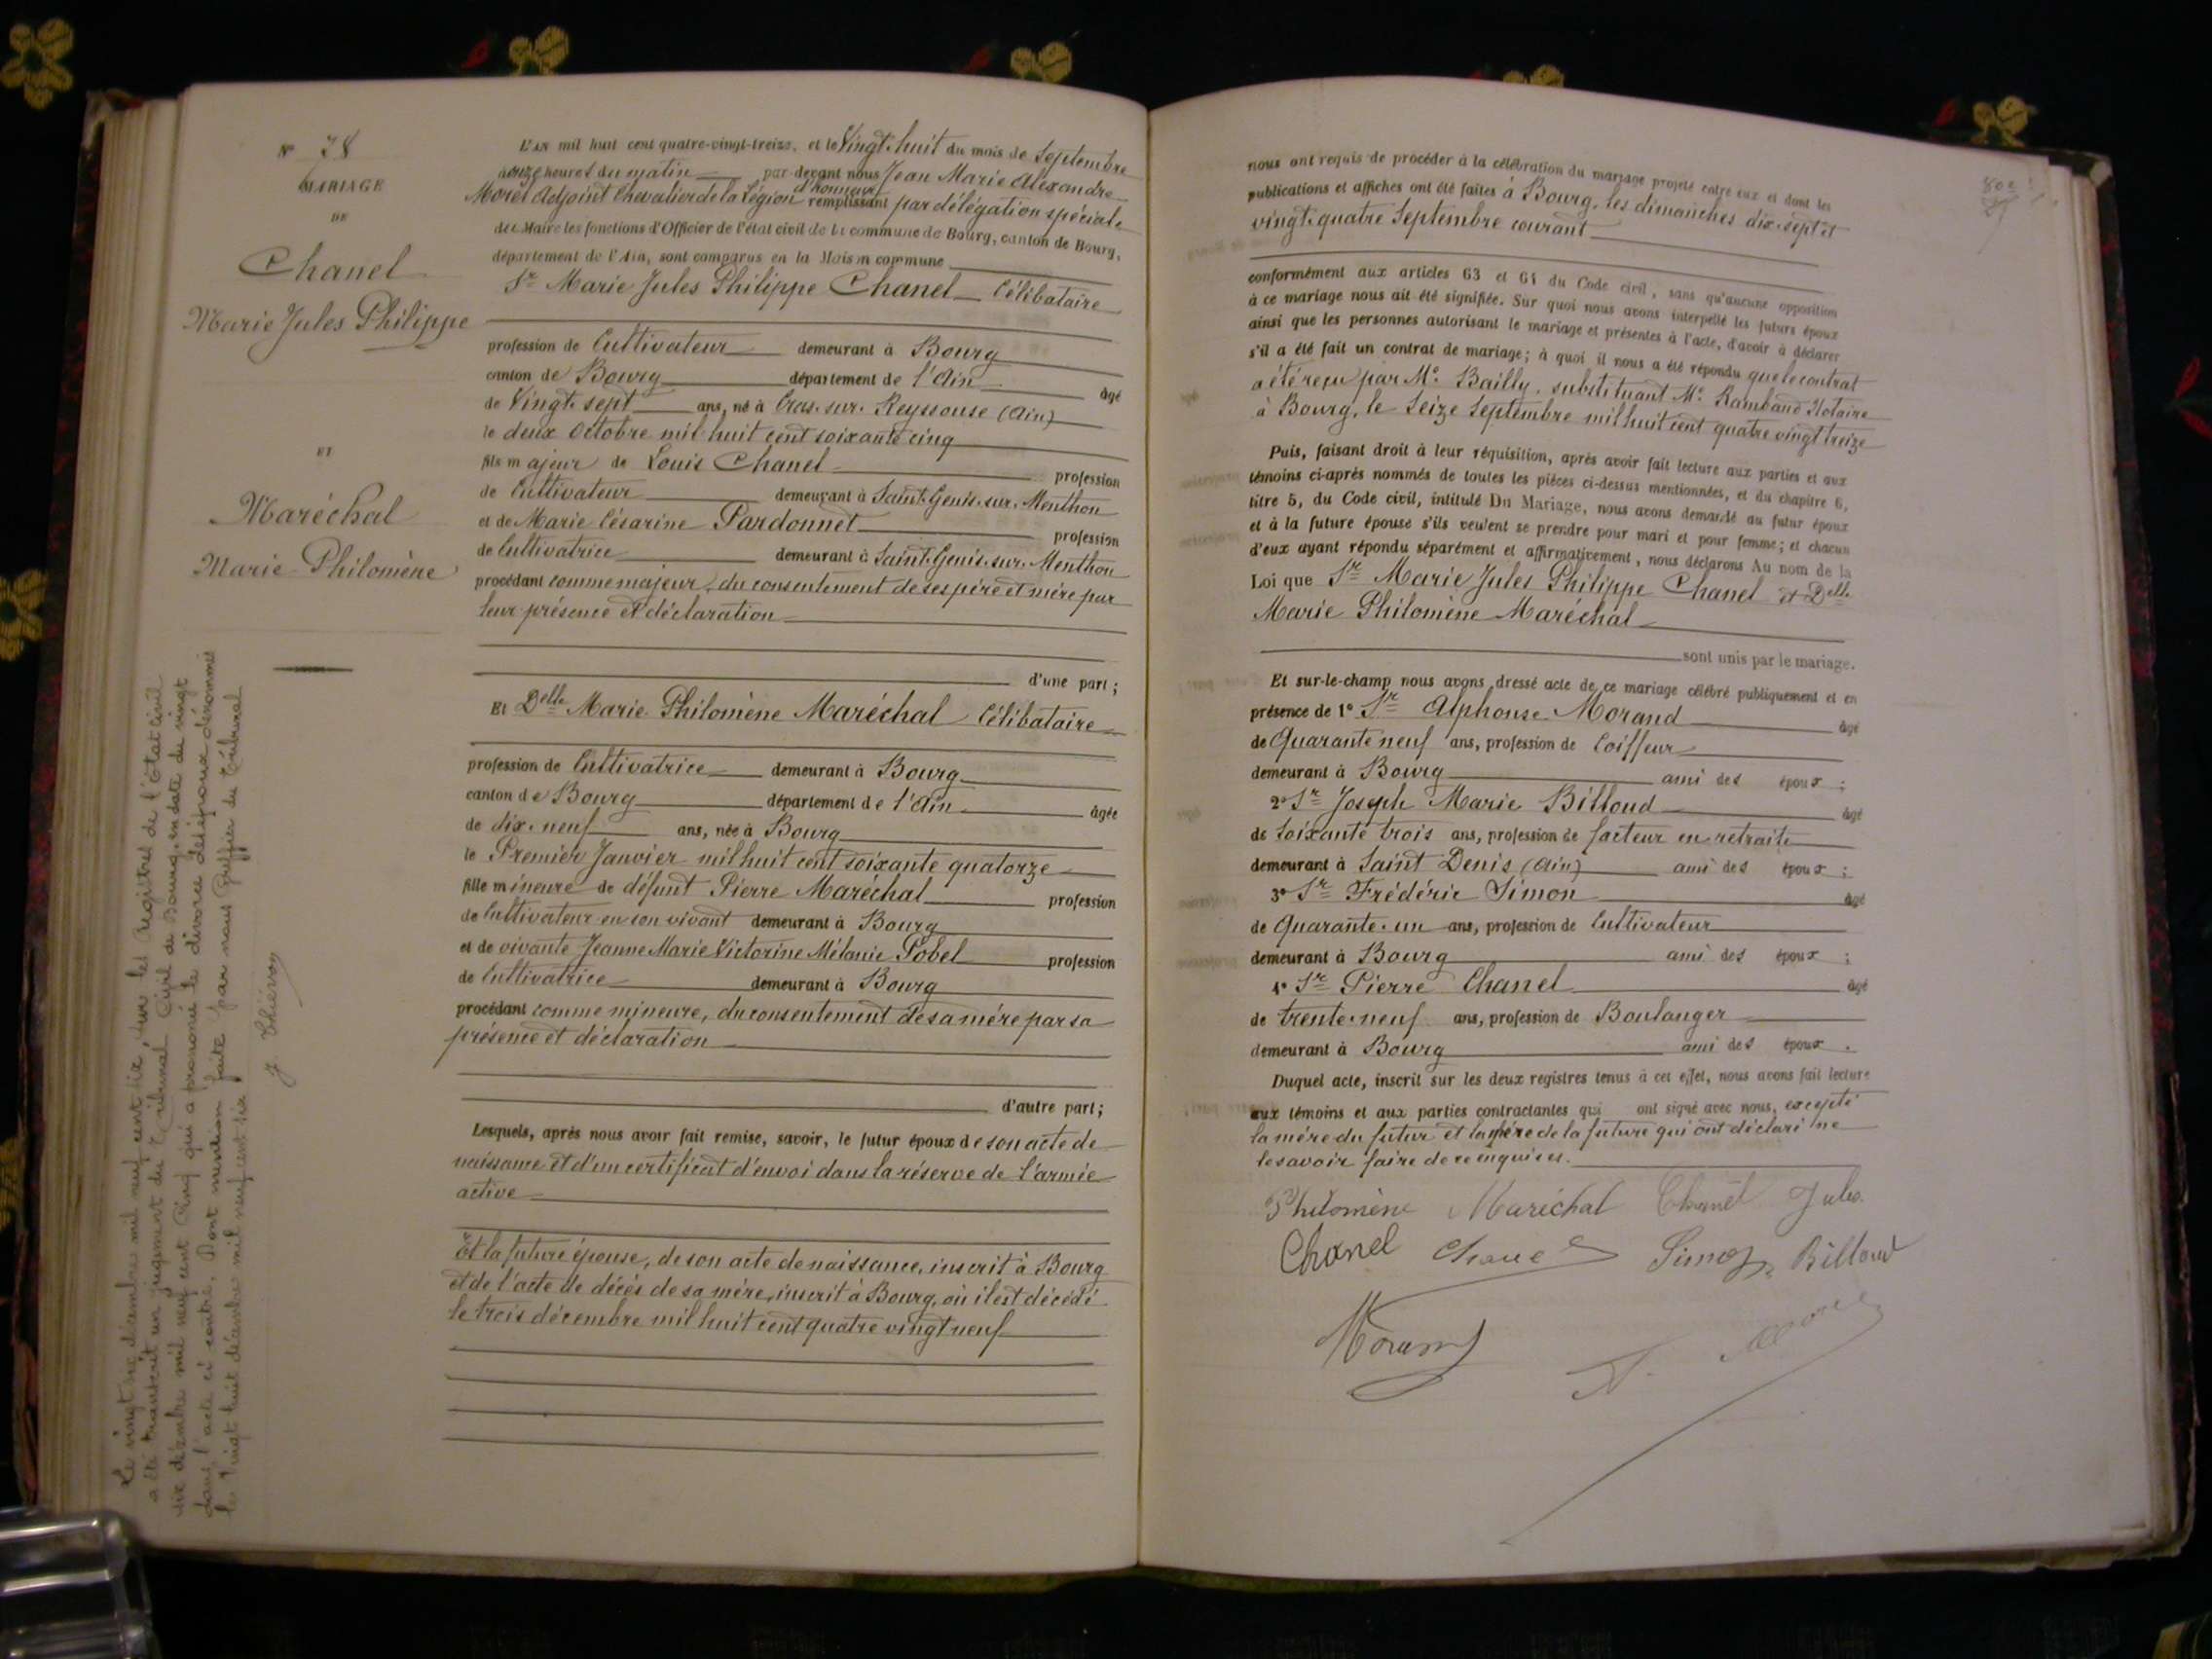 N° 78
MARIAGE
DE
Chanel
Marie Jules Philippe
ET
Maréchal
Marie Philomène
Le vingt six décembre mil neuf cent six, sur les Registres de l'Etat Civil
a été transcrit un jugement du Tribunal Civil de Bourg, en date du vingt
six décembre mil neuf cent cinq qui a prononcé le divorce des époux dénommés
dans l'acte ci contre. Dont mention faite par nous Greffier du Tribunal
le vingt huit décembre mil neuf cent six
L'AN mil huit cent quatre-vingt-treize, et le Vingt-huit du mois de Septembre
à onze heures du matin par-devant nous Jean Marie Alexandre
Morel Adjoint Chevalier de la Légion d'honneur remplissant par délégation spéciale
du Maire les fonctions d'Officier de l'état civil de la commune de Bourg, canton de Bourg,
département de l'Ain, sont comparus en la Maison commune
Sr Marie Jules Philippe Chanel Célibataire
profession de Cultivateur demeurant à Bourg
canton de Bourg département de l'Ain âgé
de Vingt-sept ans, né à Cras-sur-Reyssouse (Ain)
le deux Octobre mil huit cent soixante cinq
fils majeur de Louis Chanel profession
de Cultivateur demeurant à Saint-Genis-sur-Menthon
et de Marie Césarine Pardonnet profession
de Cultivatrice demeurant à Saint-Genis-sur-Menthon
procédant comme majeur, du consentement de ses père et mère par
leur présence et déclaration
d'une part ;
Et Delle Marie Philomène Maréchal Célibataire
profession de Cultivatrice demeurant à Bourg
canton de Bourg département de l'Ain âgée
de dix-neuf ans, née à Bourg
le Premier Janvier mil huit cent soixante quatorze
fille mineure de défunt Pierre Maréchal profession
de Cultivateur en son vivant demeurant à Bourg
et de vivante Jeanne Marie Victorine Mélanie Pobel profession
de Cultivatrice demeurant à Bourg
procédant comme mineure, du consentement de sa mère par sa
présence et déclaration
d'autre part ;
Lesquels, après nous avoir fait remise, savoir, le futur époux de son acte de
naissance et d'un certificat d'envoi dans la réserve de l'armée
active
Et la future épouse, de son acte de naissance, inscrit à Bourg
et de l'acte de décès de sa mère, inscrit à Bourg, où il est décédé
le trois décembre mil huit cent quatre vingt neuf
nous ont requis de procéder à la célébration du mariage projeté entre eux et dont les
publications et affiches ont été faites à Bourg, les dimanches dix-sept et
vingt-quatre Septembre courant
conformément aux articles 63 et 64 du Code civil, sans qu'aucune opposition
à ce mariage nous ait été signifiée. Sur quoi nous avons interpellé les futurs époux
ainsi que les personnes autorisant le mariage et présentes à l'acte, d'avoir à déclarer
s'il a été fait un contrat de mariage ; à quoi il nous a été répondu que le contrat
a été reçu par Me Bailly, substituant Me Rambaud Notaire
à Bourg, le Seize Septembre mil huit cent quatre vingt treize
Puis, faisant droit à leur réquisition, après avoir fait lecture aux parties et aux
témoins ci-après nommés de toutes les pièces ci-dessus mentionnées, et du chapitre 6,
titre 5, du Code civil, intitulé Du Mariage, nous avons demandé au futur époux
et à la future épouse s'ils veulent se prendre pour mari et pour femme ; et chacun
d'eux ayant répondu séparément et affirmativement, nous déclarons Au nom de la
Loi que Sr Marie Jules Philippe Chanel et Delle
Marie Philomène Maréchal
sont unis par le mariage.
Et sur-le-champ nous avons dressé acte de ce mariage célébré publiquement et en
présence de 1° Sr Alphonse Morand âgé
de Quarante neuf ans, profession de Coiffeur
demeurant à Bourg ami des époux ;
2° Sr Joseph Marie Billoud âgé
de soixante trois ans, profession de facteur en retraite
demeurant à Saint Denis (Ain) ami des époux ;
3° Sr Frédéric Simon âgé
de Quarante-un ans, profession de Cultivateur
demeurant à Bourg ami des époux ;
4° Sr Pierre Chanel âgé
de trente-neuf ans, profession de Boulanger
demeurant à Bourg ami des époux.
Duquel acte, inscrit sur les deux registres tenus à cet effet, nous avons fait lecture
aux témoins et aux parties contractantes qui ont signé avec nous, excepté
la mère du futur et la mère de la future qui ont déclaré ne
le savoir faire de ce enquises.
Philomène Maréchal Chanel Jules
Chanel Chanel Simon Billoud
Morand